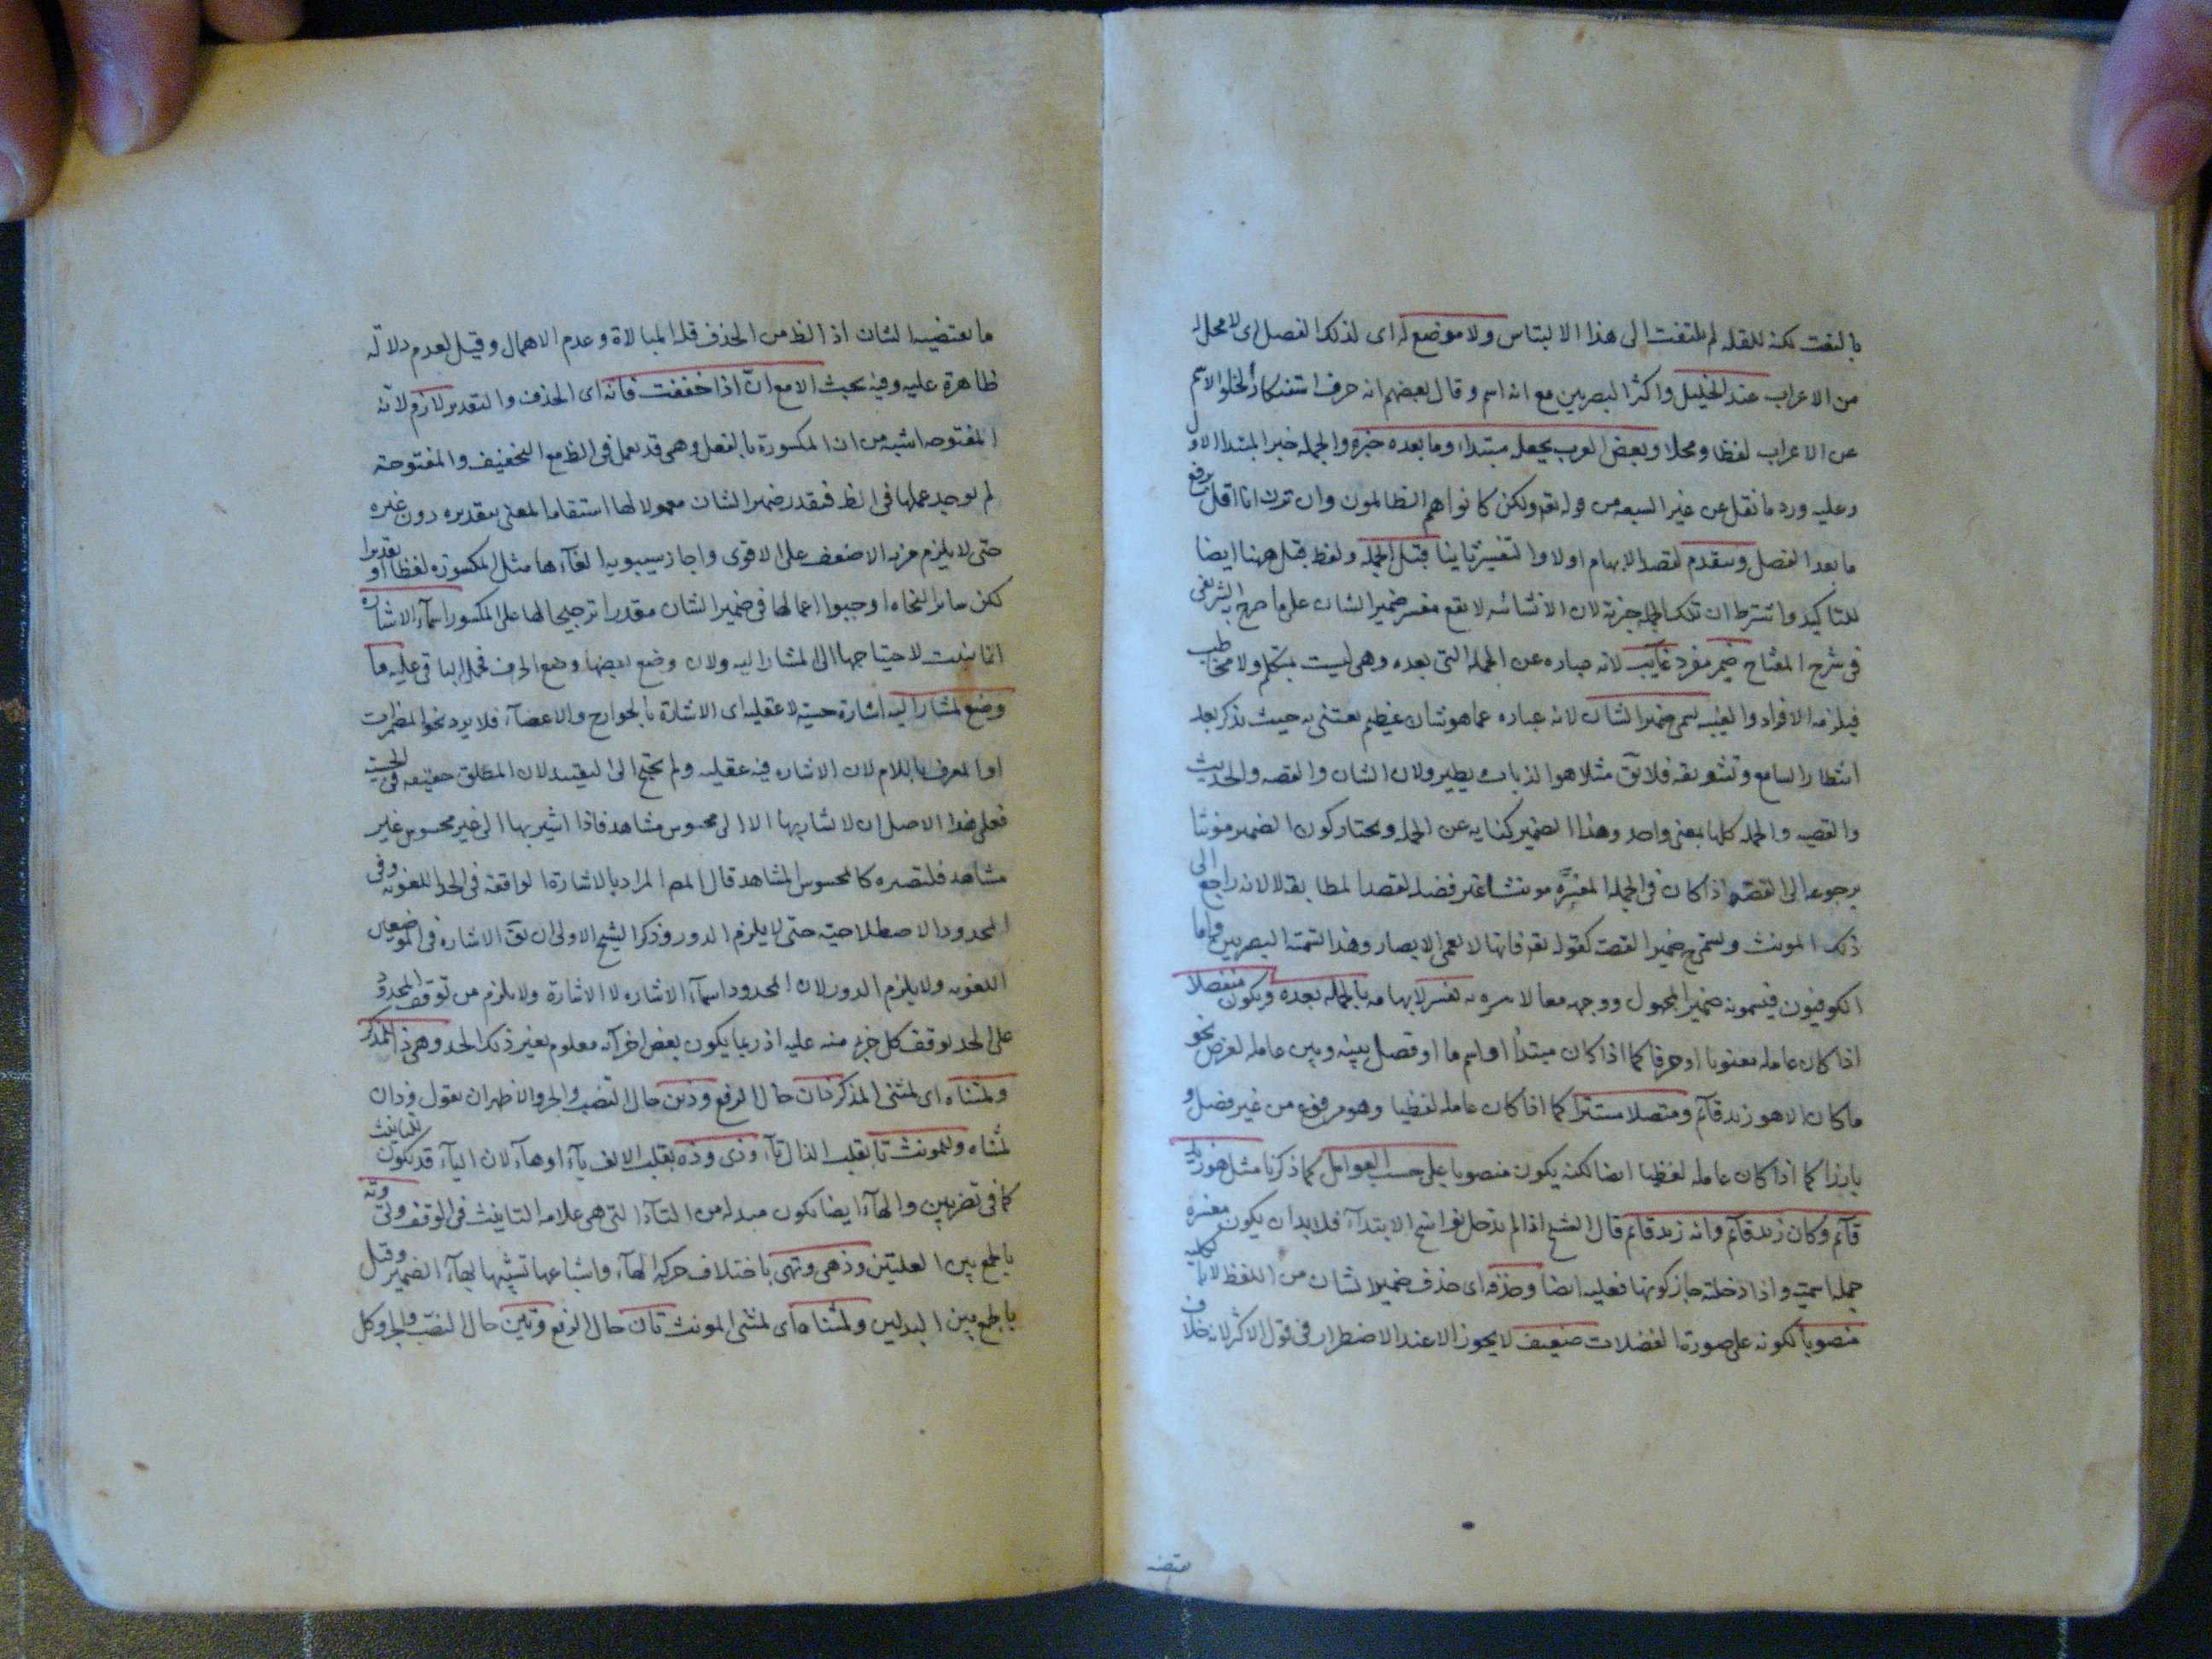 بالنعت لكنه للقلة لم يلتفت الى هذا الالتباس ولا موضع له اى لذلك الفصل اى لا محل له
من الاعراب عند الخليل واكثر البصريين مع انه اسم وقال بعضهم انه حرف استنكارا لخلو الاسم
عن الاعراب لفظا ومحلا وبعض العرب يجعله مبتداء وما بعده خبره والجملة خبر المبتدا الاول
وعليه ورد ما نقل عن غير السبعه من قوله تعم ولكن كانوا هم الظالمون وان ترن انا اقل برفع
ما بعد الفصل ويتقدم لقصد الابهام اولا والتفسير ثانيا قبل الجمله ولفظ قبل ههنا ايضا
للتاكيد واشترط ان تلك الجمله خبرية لان الانشائيه لا يقع مفسر ضمير الشان على ما صرح به الشريف
فى شرح المفتاح ضمير مفرد غايب لانه عباره عن الجمله التى بعده وهى ليست بمتكلم ولا مخاطب
فيلزمه الافراد والغيبه يسمى ضمير الشان لانه عباره عما هو شان عظيم يعتنى به حيث يذكر بعد
انتظار السامع وتشويقه فلا يق مثلا هو الذباب يطير ولان الشان والقصه والحديث
والقضيه والجمله كلها بمعنى واحد وهذا الضمير كنايه عن الجمله ويختار كون الضمير مونثا
برجوعه الى القصة اذا كان فى الجملة المفسرة مونثا غير فضله لقصد المطابقة لا لانه راجع الى
ذلك المونث ويسمى ضمير القصة كقوله تعم فانها لا تعمى الابصار وهذا التسمية البصريين واما
الكوفيون فيسمونه ضمير المجهول يفسر لابهامه بالجمله بعده ويكون منفصلا
اذا كان عامله معنويا او حرفا كما اذا كان مبتدأ او اسم ما او فصل بينه وبين عامله لغرض نحو
ما كان الا هو زيد قائم ومتصلا مستترا كما اذا كان عامله لفظيا وهو مرفوع من غير فصل و
بارزا كما اذا كان عامله لفظيا ايضا لكنه يكون منصوبا على حسب العوامل كما ذكرنا مثل هو زيد
قآئم وكان زيد قآئم وانه زيد قائم قال الشيخ اذا لم يدخل نواسخ الابتدآء فلا بد ان يكون مفسره
جملة اسمية واذا دخلته جاز كونها فعليه ايضا وحذفه اى حذف ضمير الشان من اللفظ
منصوبا لكونه على صورة الفضلات ضعيف لا يجوز الا عند الاضطرار فى قول الاكثر لانه خلاف
ما يقتضيه الشان اذ الظ من الحذف قلة المبالاة وعدم الاهمال وقيل لعدم دلالة
ظاهرة عليه وفيه بحث الا مع انّ اذا خففت فانه اى الحذف والتقدير لازم لانه
المفتوحه اشبه من ان المكسورة بالفعل وهى قد يعمل فى الظ مع التخفيف والمفتوحة
لم يوجد عملها فى الظ فيقدر ضمير الشان معمولا لها استقاما لمعنى بتقديره دون غيره
حتى لا يلزم مزية الاضعف على الاقوى واجاز سيبويه الغآءها مثل المكسورة لفظا او تقديرا
لكن سائر النحاه اوجبوا اعمالها فى ضمير الشان مقدرا ترجيحا لها على المكسور اسمآء الاشاره
انما بنيت لاحتياجها الى المشار اليه ولان وضع بعضها وضع الحرف فحمل الباقى عليه ما
وضع لمشار اليه اشارة حسية لا عقليه اى الاشارة بالجوارح والاعضآء فلا يرد نحو المظهرات
او المعرف باللام لان الاشاره فيه عقليه ولم يحتج الى التقييد لان المطلق حقيقه فى الحسية
فعلى هذا الاصل ان لا يشار بها الا الى محسوس مشاهد فاذا اشير بها الى غير محسوس غير
مشاهد فلتصيره كالمحسوس المشاهد قال المص المراد بالاشارة الواقعة فى الحد اللغويه وفى
المحدود الاصطلاحية حتى لا يلزم الدور وذكر الشيخ الاولى ان يق الاشاره فى الموضعين
اللغويه ولا يلزم الدور لان المحدود اسمآء الاشاره لا الاشارة ولا يلزم من توقف المحدود
على الحد توقف كل جزء منه عليه اذ ربما يكون بعض اجزآئه معلوم بغير ذلك الحد وهى ذا للمذكر
ولمثناه اى لمثنى المذكر ذان حال الرفع وذين حال النصب والجر والاظهر ان يقول وذان
لمثناه وللمونث تا بقلب الذال تآء وذى وذه بقلب الالف يآء او هآء لان اليآء قد يكون للتانيث
كما فى تضربين والهآء ايضا يكون مبدله من التآء التى هى علامه التانيث فى الوقف وتى وته
بالجمع بين العلتين وذهى وتهى باختلاف حركة الهآء واشباعها تشبيها بهآء الضمير وقيل
بالجمع بين البدلين ولمثناه اى لمثنى المونث تان حال الرفع وتين حال النصب والجر وكل